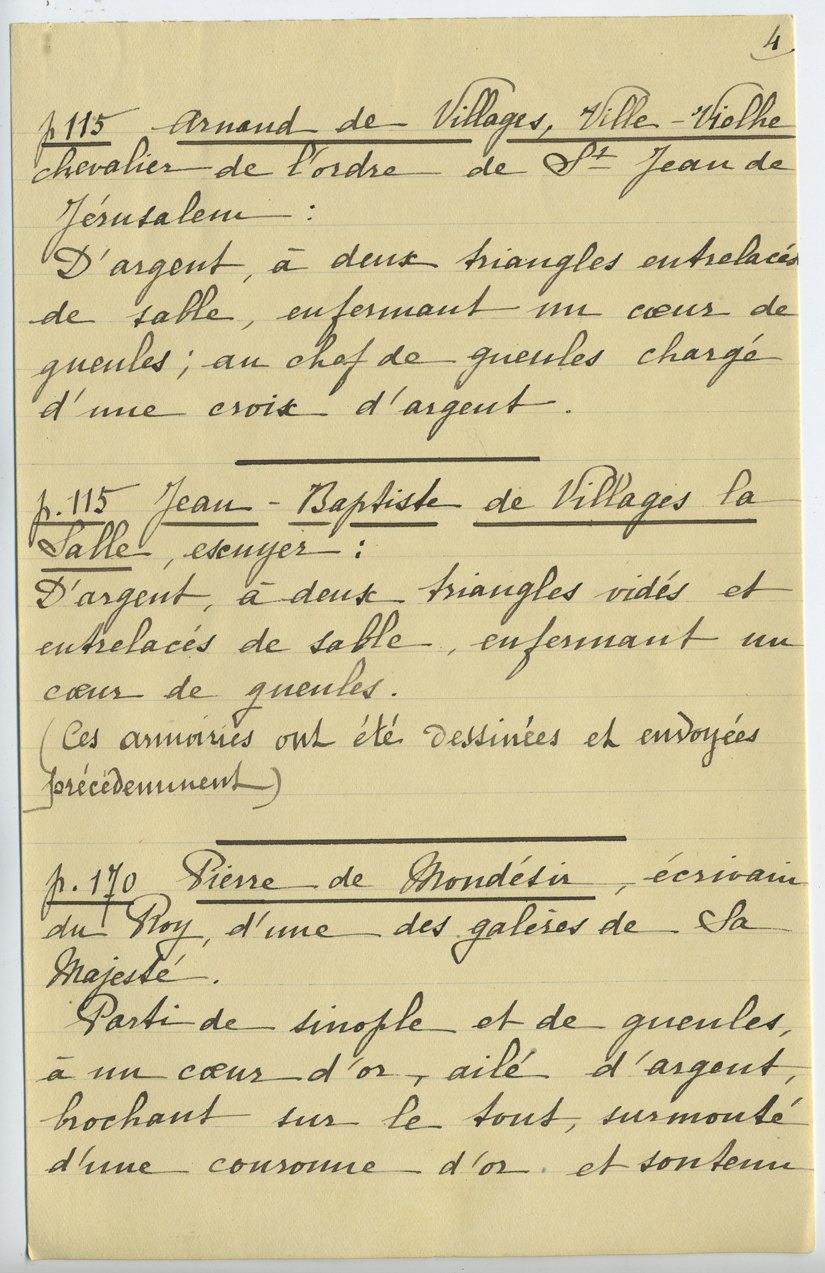 4
p 115 Arnaud de Villages, Ville-Vielhe
chevalier de l'ordre de St Jean de
Jérusalem :
D'argent, à deux triangles entrelacés
de salle, enfermant un cœur de
gueules ; au chef de gueules chargé
d'une croix d'argent.
p. 115 Jean-Baptiste de Villages la
Salle, escuyer :
D'argent, à deux triangles vidés et
entrelacés de sable, enfermant un
cœur de gueules.
(Ces armoiries ont été dessinées et envoyées
précédemment)
p. 170 Pierre de Mondésir, écrivain
du Roy, d'une des galères de Sa
Majesté.
Parti de sinople et de gueules,
à un cœur d'or, ailé d'argent,
brochant sur le tout, surmonté
d'une couronne d'or et soutenu